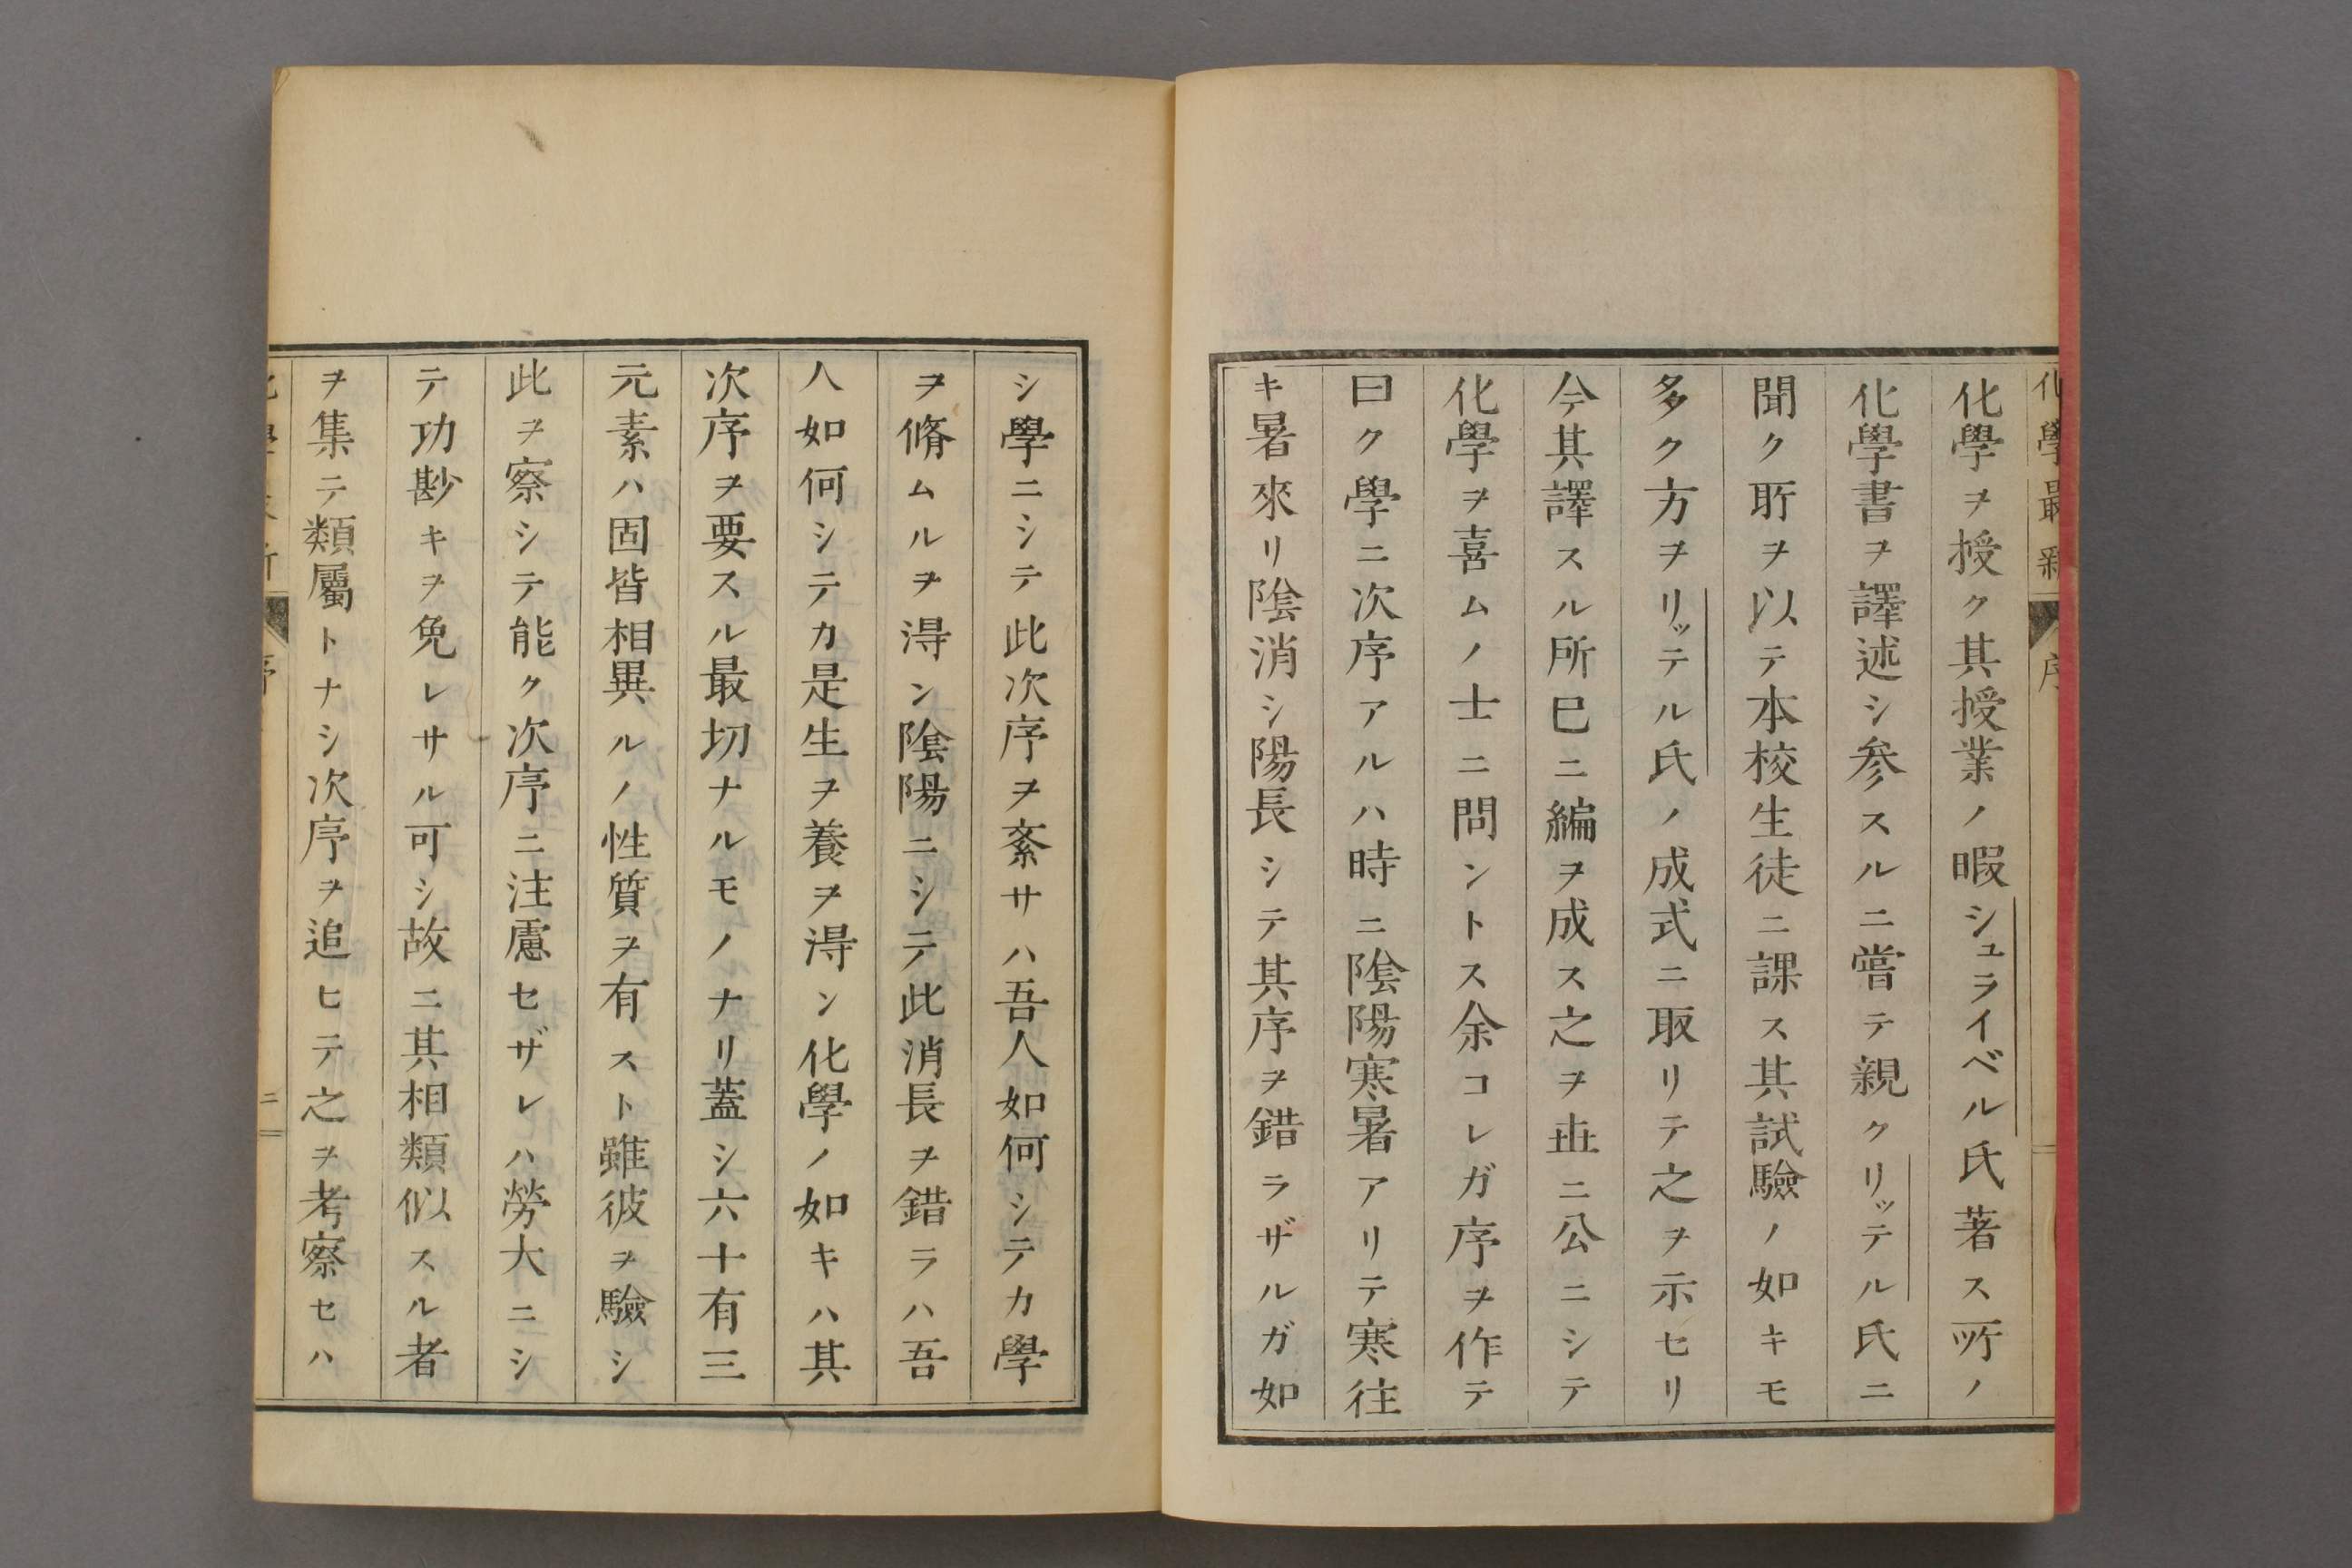 化學最新 序
化學ヲ授ク其授業ノ暇シュライベル氏著ス所ノ
化學書ヲ譯述シ参スルニ嘗テ親クリッテル氏ニ
聞ク所ヲ以テ本校生徒ニ課ス其試驗ノ如キモ
多ク方ヲリッテル氏ノ成式ニ取リテ之ヲ示セリ
今其譯スル所巳ニ編ヲ成ス之ヲ丗ニ公ニシテ
化學ヲ喜ムノ士ニ問ントス余コレガ序ヲ作テ
曰ク學ニ次序アルハ時ニ陰陽寒暑アリテ寒往
キ暑來リ陰消シ陽長シテ其序ヲ錯ラザルガ如
シ學ニシテ此次序ヲ紊サハ吾人如何シテカ學
ヲ脩ムルヲ淂ン陰陽ニシテ此消長ヲ錯ラハ吾
人如何シテカ是生ヲ養ヲ淂ン化學ノ如キハ其
次序ヲ要スル最切ナルモノナリ蓋シ六十有三
元素ハ固皆相異ルノ性質ヲ有スト雖彼ヲ驗シ
此ヲ察シテ能ク次序ニ注慮セザレハ勞大ニシ
テ功尠キヲ免レサル可シ故ニ其相類似スル者
ヲ集テ類屬トナシ次序ヲ追ヒテ之ヲ考察セハ
序 二